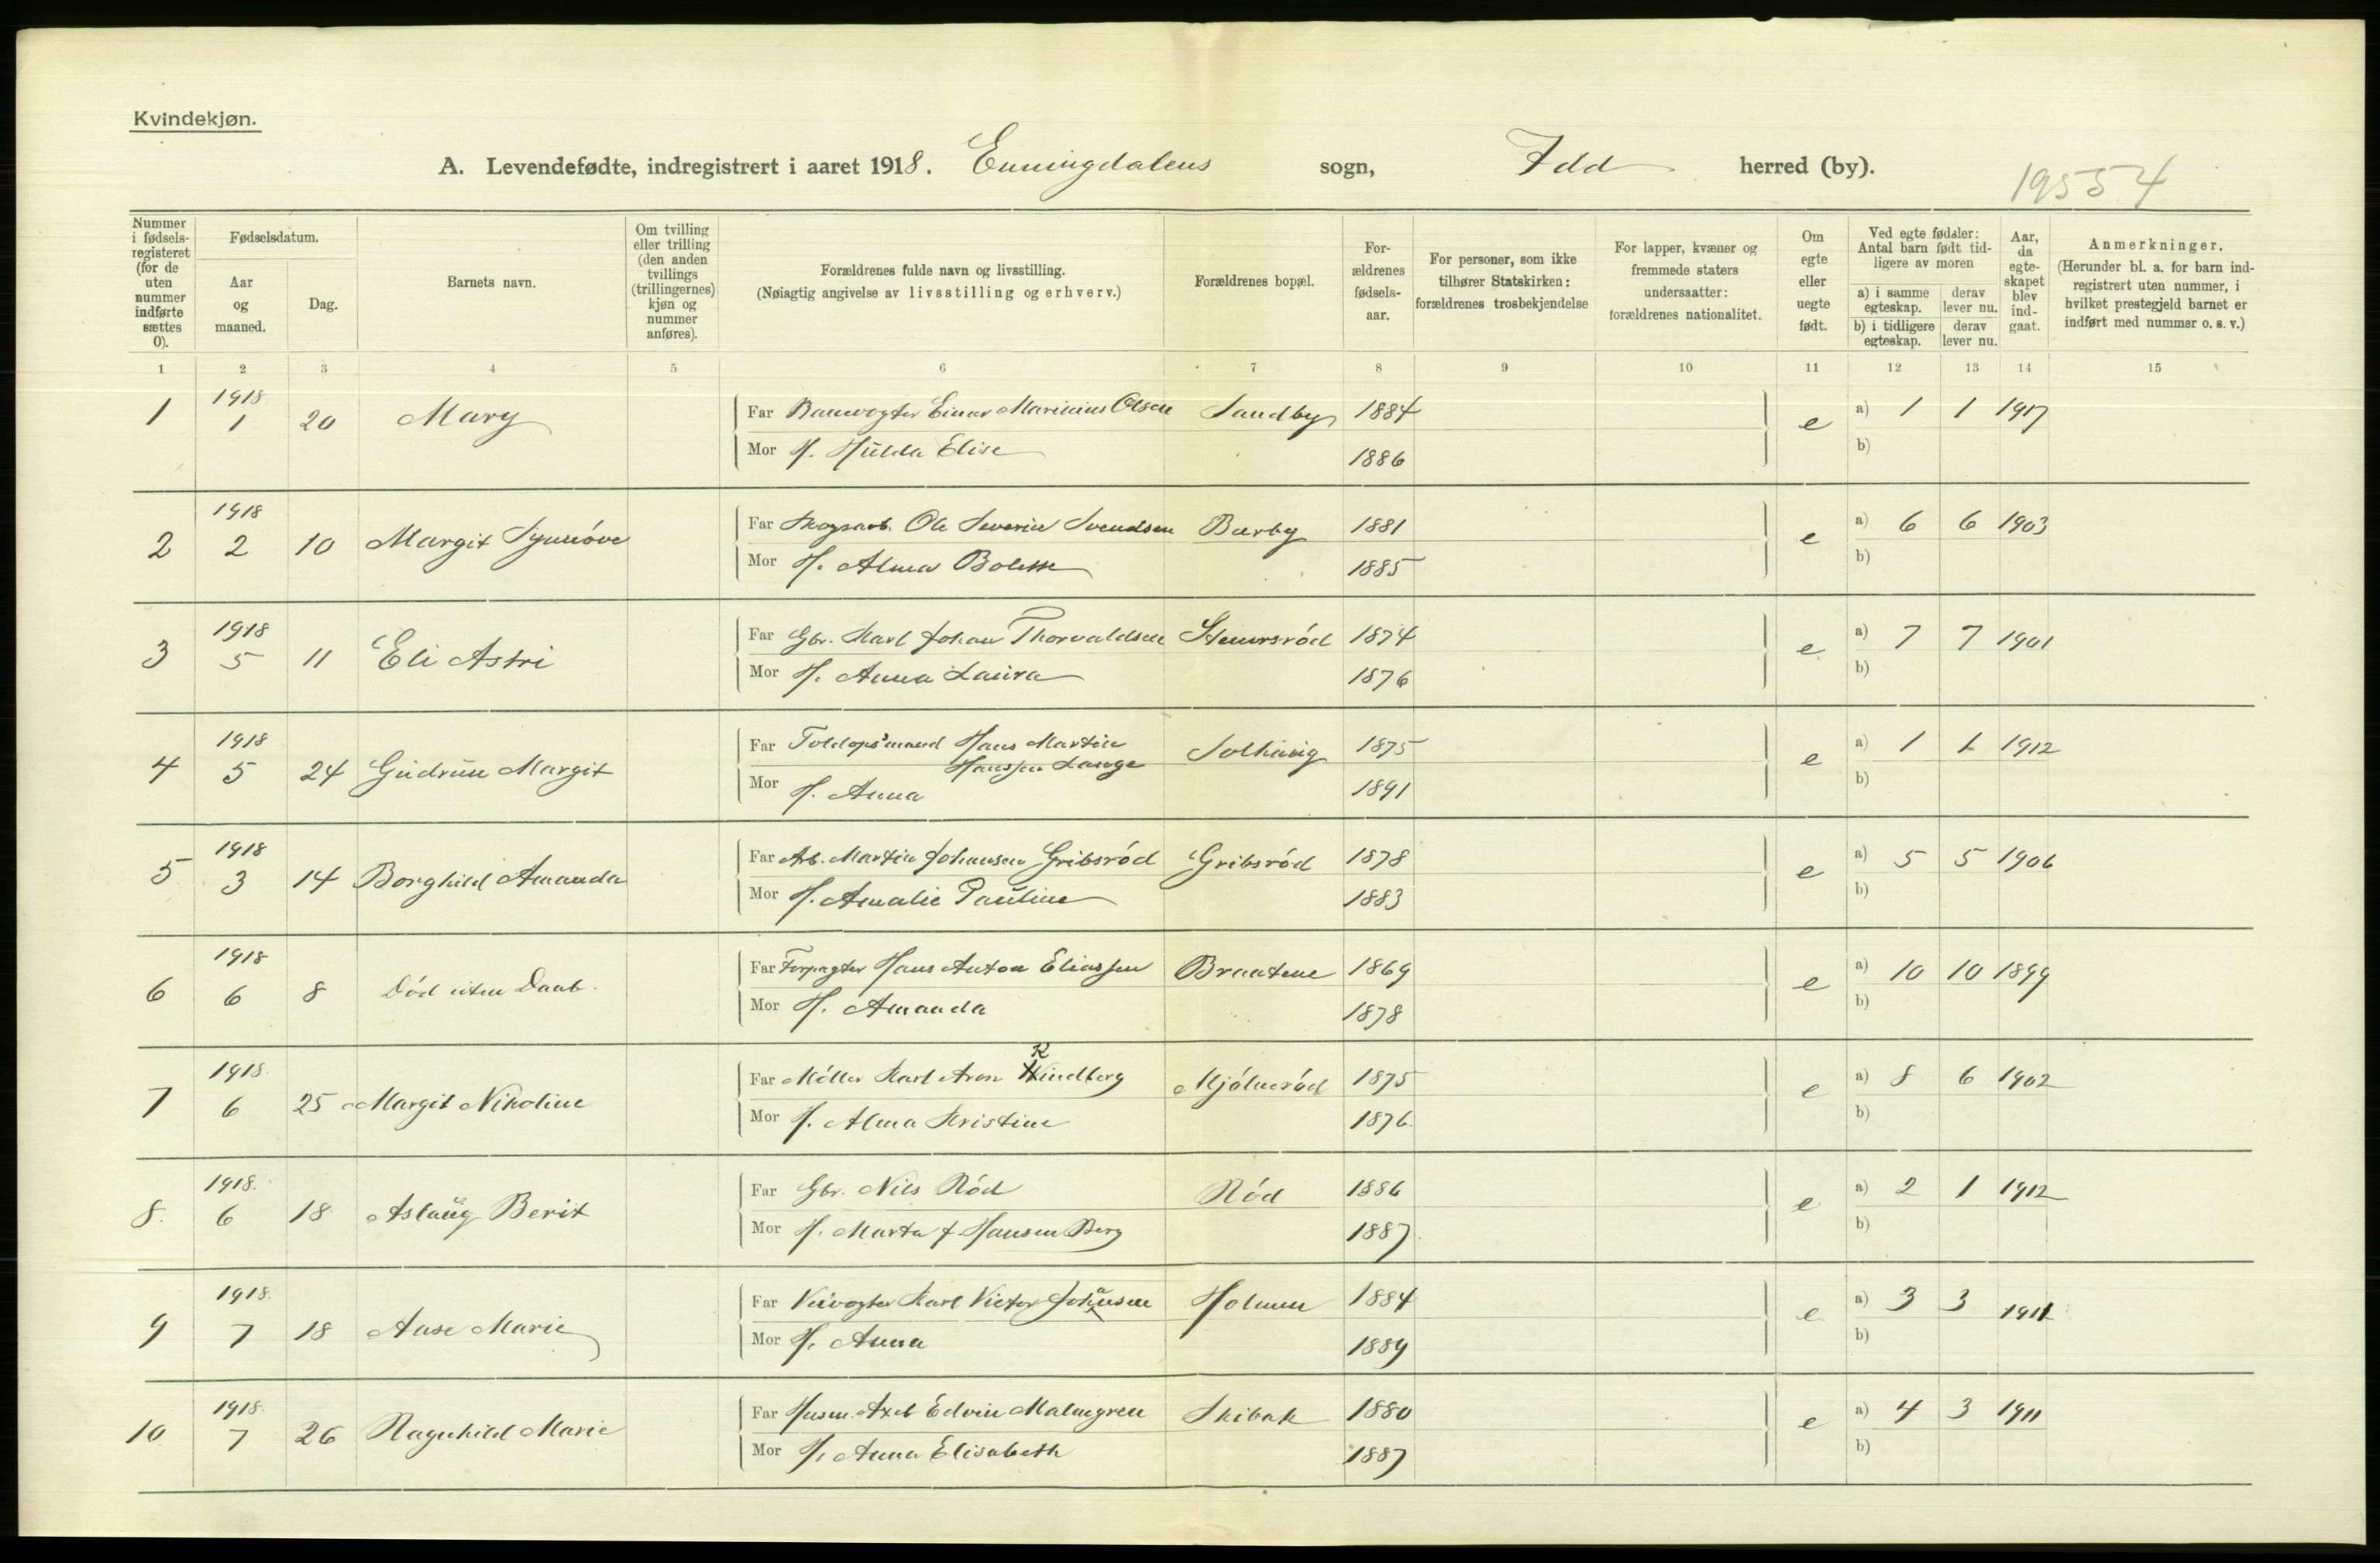 Kvindekjøn.
A. Levendefødte, indregistrert i aaret 1918. Enningdalens sogn, Idd herred (by).
19554
Nummer i fødsels-registeret (for de uten nummer indførte sættes 0).
Fødselsdatum.
Aar og maaned.
Dag.
Barnets navn.
Om tvilling eller trilling (den anden tvillings (trillingernes) kjøn og nummer anføres).
Forældrenes fulde navn og livsstilling.
(Nøiagtig angivelse av livsstilling og erhverv.)
Forældrenes bopæl.
For-ældrenes fødsels-aar.
For personer, som ikke tilhører Statskirken: forældrenes trosbekjendelse
For lapper, kvæner og fremmede staters undersaatter: forældrenes nationalitet.
Om egte eller uegte født.
Ved egte fødsler: Antal barn født tid-ligere av moren
a) i samme egteskap.
derav lever nu.
b) i tidligere egteskap.
derav lever nu.
Aar, da egte-skapet blev ind-gaat.
Anmerkninger.
(Herunder bl. a. for barn ind-registrert uten nummer, i hvilket prestegjeld barnet er indført med nummer o. s. v.)
1 2 3 4 5 6 7 8 9 10 11 12 13 14 15
1 1918 1 20 Mary Far Banevogter Einar Marinius Olsen Sandby 1884 e a) 1 1 1917
Mor H. Hulda Elise 1886 b)
2 1918 2 10 Margit Synnöve Far Skogsarb. Ole Severin Svendsen Bærby 1881 e a) 6 6 1903
Mor H. Alma Bolette 1885 b)
3 1918 5 11 Eli Astri Far Gbr. Karl Johan Thorvaldsen Stenersröd 1874 e a) 7 7 1901
Mor H. Anna Laura 1876 b)
4 1918 5 24 Gudrun Margit Far Toldops'mand Hans Martin Hanssen Lange Solhaug 1875 e a) 1 1 1912
Mor H. Anna 1891 b)
5 1918 3 14 Borghild Amanda Far Arb. Martin Johansen Gribsröd Gribsröd 1878 e a) 5 5 1906
Mor H. Amalie Pauline 1883 b)
6 1918 6 8 Död uten Daab. Far Forpagter Hans Anton Eliassen Braatene 1869 e a) 10 10 1899
Mor H. Amanda 1878 b)
7 1918. 6 25 Margit Nikoline Far Möller Karl Aron Kindberg Mjölneröd 1875 e a) 8 6 1902
Mor H. Alma Kristine 1876. b)
8. 1918. 6 18 Aslaug Berit Far Gbr. Nils Röd Röd 1886 e a) 2 1 1912
Mor H. Marta f. Hansen Berg 1887 b)
9 1918. 7 18 Aase Marie Far Veivogter Karl Victor Johansen Holmen 1884 e a) 3 3 1911
Mor H. Anna 1889 b)
10 1918. 7 26 Ragnhild Marie Far Husm. Axel Edvin Malmgren Skibak 1880 e a) 4 3 1911
Mor H. Anna Elisabeth 1887 b)